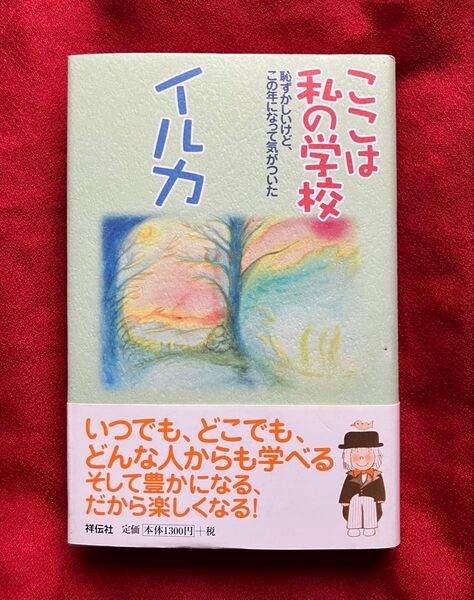 ここは
私の学校
恥ずかしいけど、
この年になって気がついた
イルカ
いつでも、どこでも、
どんな人からも学べる
そして豊かになる、
だから楽しくなる!
祥伝社 定価 本体1300円+税